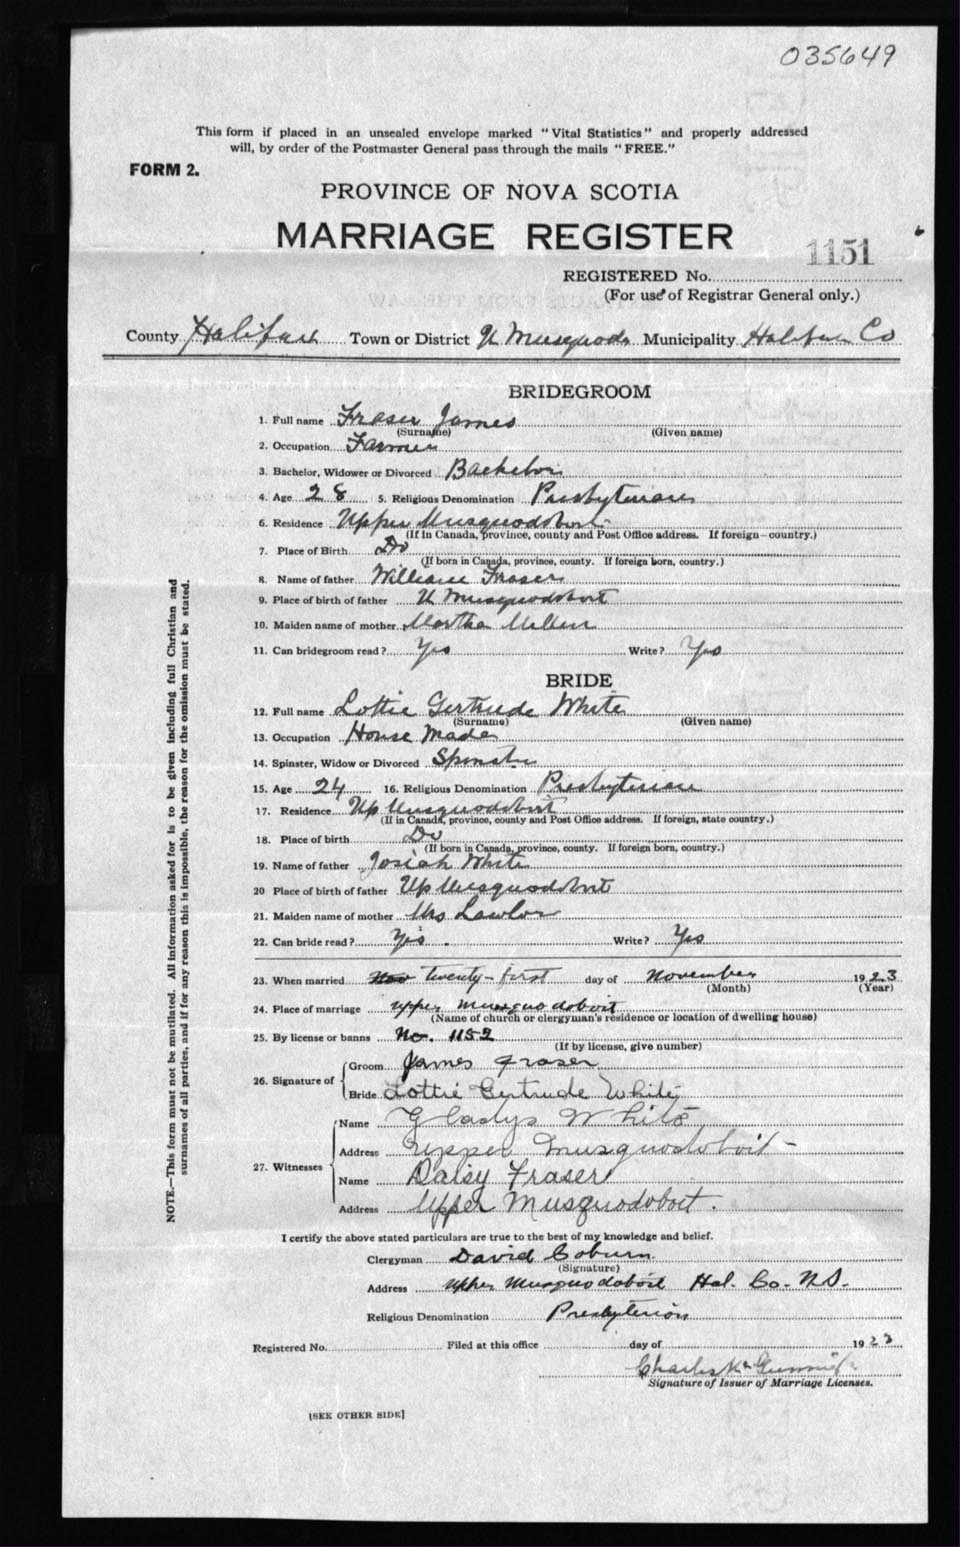 035649
This form if placed in an unsealed envelope marked "Vital Statistics" and properly addressed
will, by order of the Postmaster General pass through the mails "FREE."
FORM 2.
PROVINCE OF NOVA SCOTIA
MARRIAGE REGISTER
1151
REGISTERED No.
(For use of Registrar General only.)
County Halifax Town or District U Musquodo Municipality Halifax Co
BRIDEGROOM
1. Full name Fraser James
(Surname) (Given name)
2. Occupation Farmer
3. Bachelor, Widower or Divorced Bachelor
4. Age 28 5. Religious Denomination Presbyterian
6. Residence Upper Musquodoboit
(If in Canada, province, county and Post Office address. If foreign—country.)
7. Place of Birth Do
(If born in Canada, province, county. If foreign born, country.)
8. Name of father William Fraser
9. Place of birth of father U Musquodoboit
10. Maiden name of mother Martha
11. Can bridegroom read? Yes Write? Yes
BRIDE
12. Full name Lottie Gertrude White
(Surname) (Given name)
13. Occupation House Made
14. Spinster, Widow or Divorced Spinster
15. Age 24 16. Religious Denomination Presbyterian
17. Residence Up Musquodoboit
(If in Canada, province, county and Post Office address. If foreign, state country.)
18. Place of birth Do
(If born in Canada, province, county. If foreign born, country.)
19. Name of father Josiah White
20 Place of birth of father Up Musquodoboit
21. Maiden name of mother Mrs Lawlor
22. Can bride read? Yes. Write? Yes
23. When married Nov twenty-first day of November 1923
(Month) (Year)
24. Place of marriage Upper Musquodoboit
(Name of church or clergyman's residence or location of dwelling house)
25. By license or banns No. 1152
(If by license, give number)
26. Signature of
Groom James Fraser
Bride Lottie Gertrude White
27. Witnesses
Name Gladys White
Address Upper Musquodoboit-
Name Daisy Fraser
Address Upper Musquodoboit.
I certify the above stated particulars are true to the best of my knowledge and belief.
Clergyman David Coburn.
(Signature)
Address Upper Musquodoboit Hal. Co. N.S.
Religious Denomination Presbyterian
Registered No. Filed at this office day of 1923
Charles
Signature of Issuer of Marriage Licenses.
[SEE OTHER SIDE]
NOTE.—This form must not be mutilated. All information asked for is to be given including full Christian and
surnames of all parties, and if for any reason this is impossible, the reason for the omission must be stated.